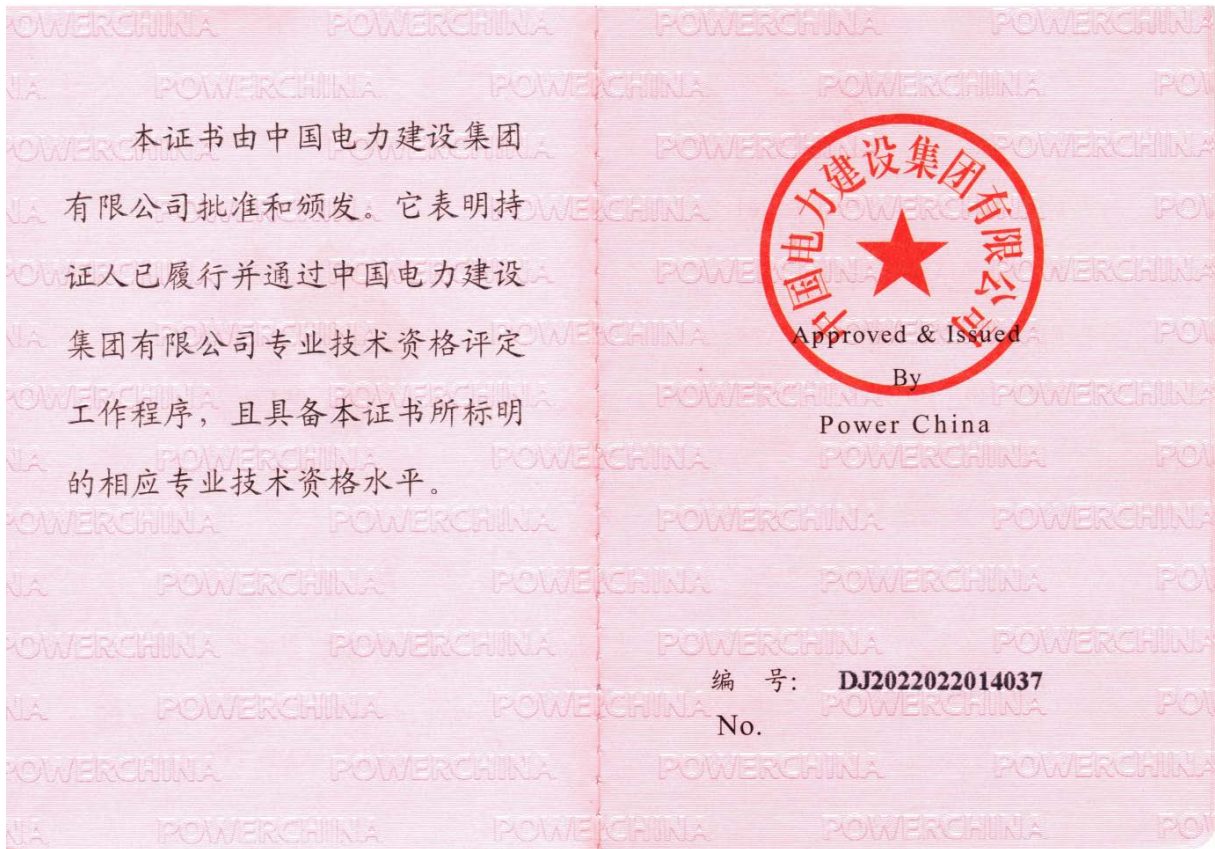 本证书由中国电力建设集团
有限公司批准和颁发。它表明持
证人已履行并通过中国电力建设
集团有限公司专业技术资格评定
工作程序，且具备本证书所标明
的相应专业技术资格水平。
中国电力建设集团有限公司
Approved & Issued
By
Power China
编 号: DJ2022022014037
No.
POWERCHINA